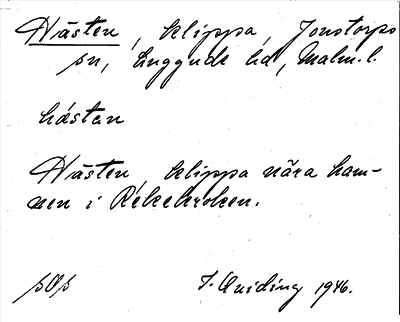 Hästen, klippa, Jonstorps
sn, Luggude hd, Malm. l.
hástan
Hästen, klippa nära ham-
nen i Rekekroken.
1946.